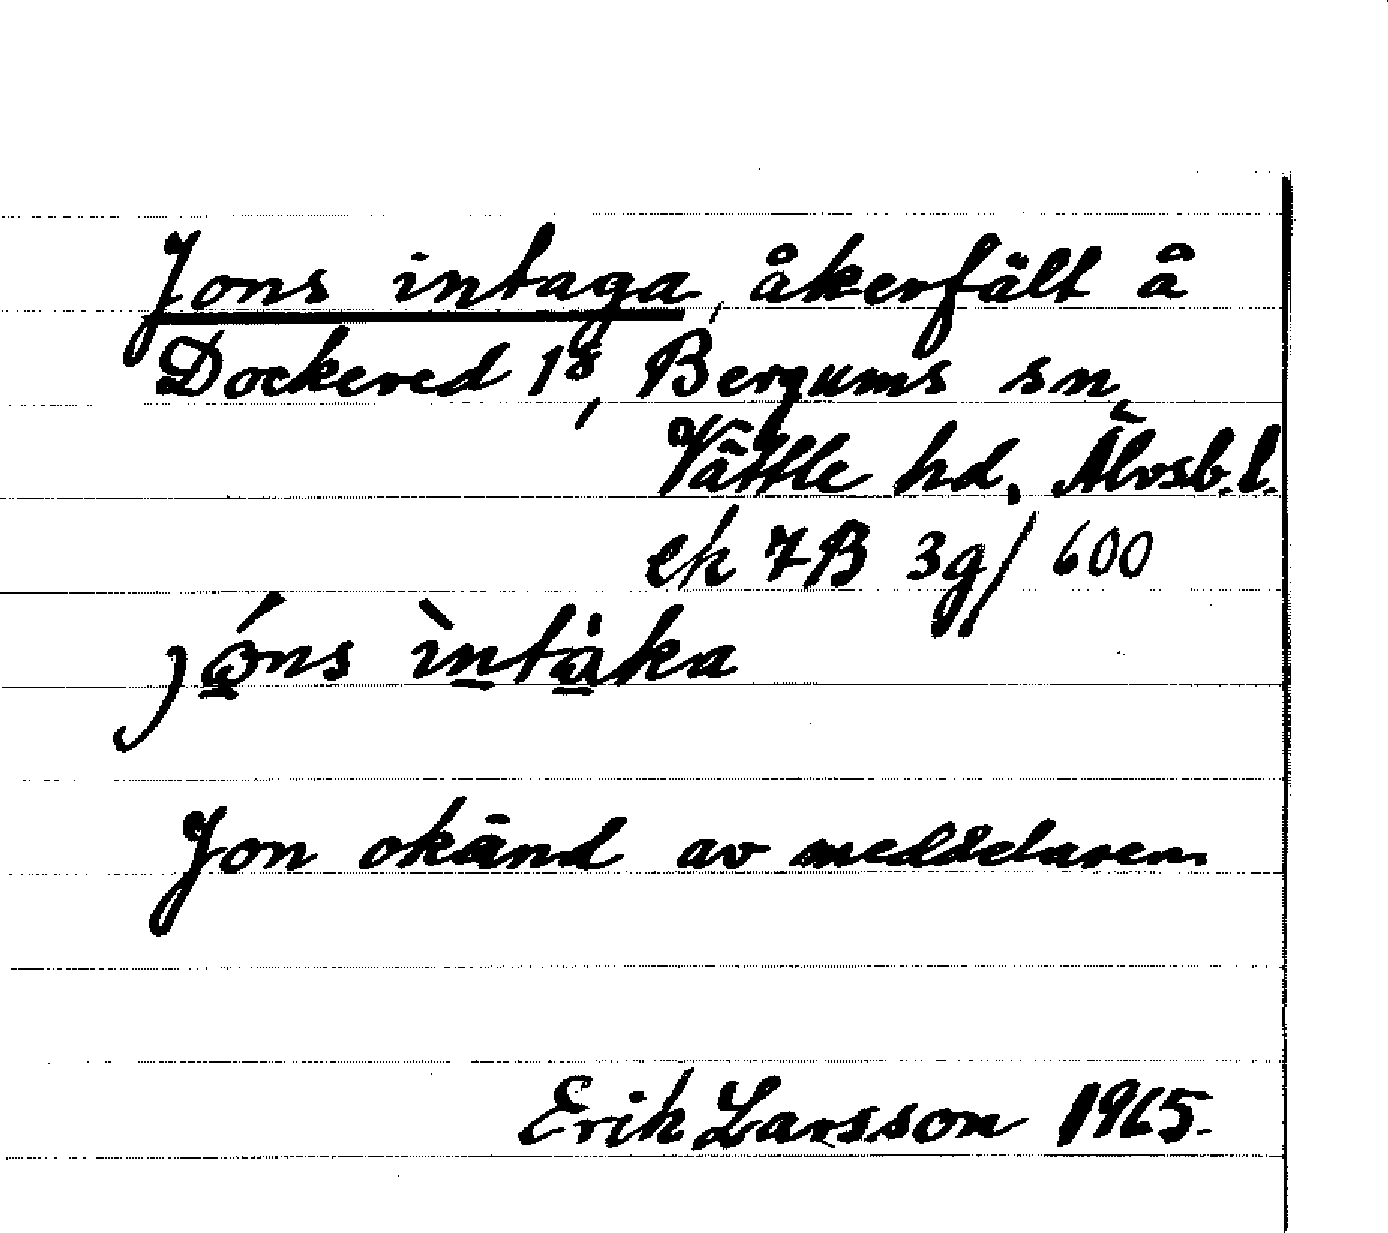 Jons intaga, åkerfält å
Dockered 1⁸, Bergums sn,
Vättle hd, Älvsb.l.
ek 7B 3g/600
jóns ìntåka
Jon okänd av meddelaren
Erik Larsson 1965.